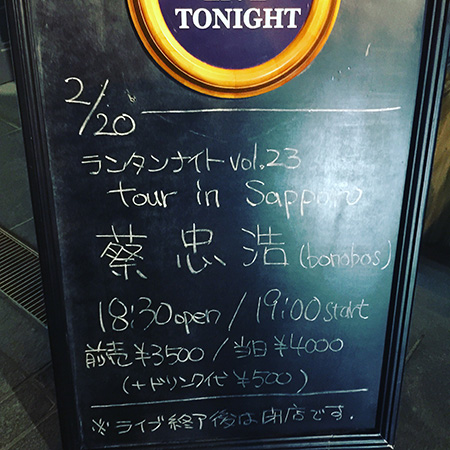 TONIGHT
2/20
ランタンナイトvol.23
tour in Sapporo
蔡忠浩(bonobos)
18:30open / 19:00start
前売¥3500 / 当日¥4000
(+ドリンク代¥500)
※ライブ終了後は閉店です.